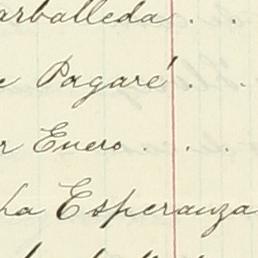 arballeda . .
e Pagaré . .
r Enero . . .
ha Esperanza